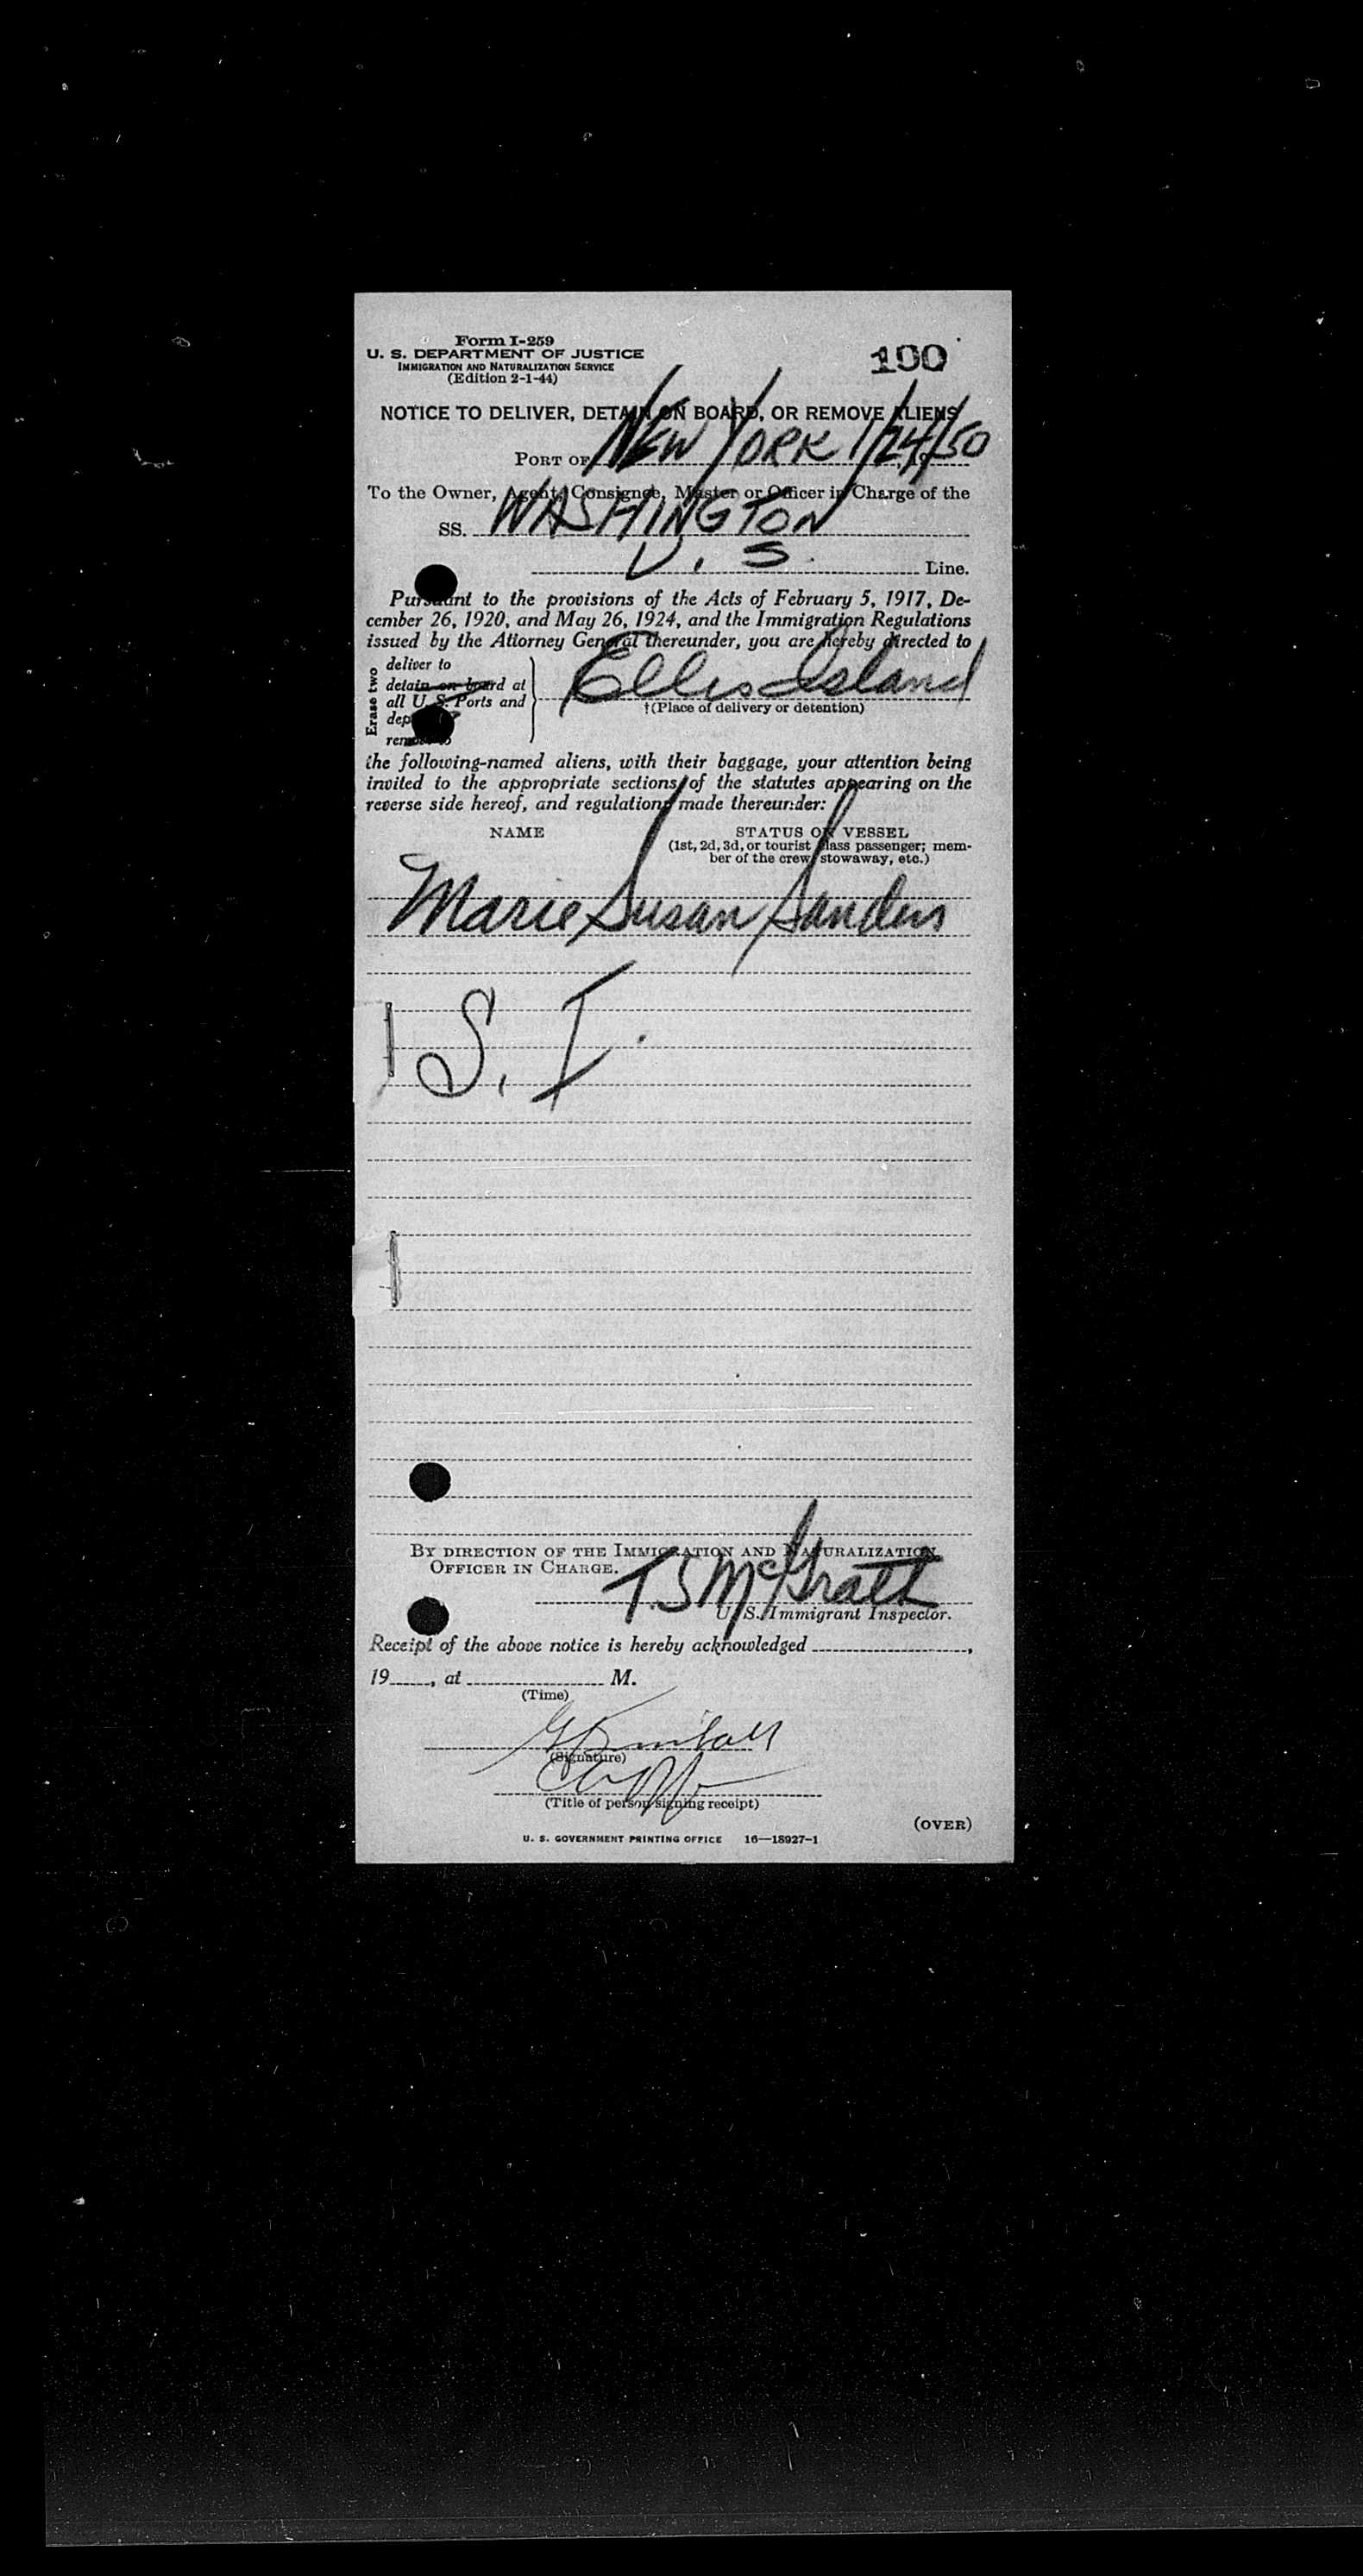 Form I-259
U. S. DEPARTMENT OF JUSTICE
IMMIGRATION AND NATURALIZATION SERVICE
(Edition 2-1-44)
100
NOTICE TO DELIVER, DETAIN ON BOARD, OR REMOVE ALIENS
PORT OF NEW YORK 1/24/50, 19
To the Owner, Agent, Consignee, Master or Officer in Charge of the
SS. WASHINGTON
U. S. Line.
Pursuant to the provisions of the Acts of February 5, 1917, De-
cember 26, 1920, and May 26, 1924, and the Immigration Regulations
issued by the Attorney General thereunder, you are hereby directed to
Erase two
deliver to
detain on board at
all U. S. Ports and
dep
remove to
Ellis Island
†(Place of delivery or detention)
the following-named aliens, with their baggage, your attention being
invited to the appropriate sections of the statutes appearing on the
reverse side hereof, and regulations made thereunder:
NAME STATUS ON VESSEL
(1st, 2d, 3d, or tourist class passenger; mem-
ber of the crew, stowaway, etc.)
Marie Susan Sanders
S. I.
BY DIRECTION OF THE IMMIGRATION AND NATURALIZATION
OFFICER IN CHARGE.
T. S McGrath
U. S. Immigrant Inspector.
Receipt of the above notice is hereby acknowledged ,
19 , at M.
(Time)
(Signature)
(Title of person signing receipt)
(OVER)
U. S. GOVERNMENT PRINTING OFFICE 16—18927-1